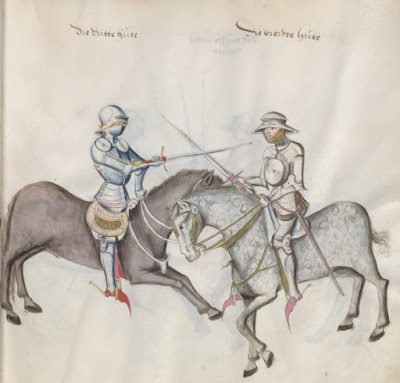 Die dritte hüte
Die vierdte hüte